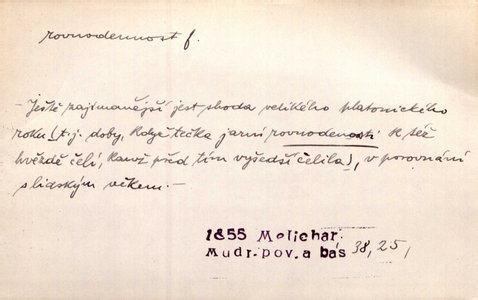 rovnodennost f.
– Ještě zajímavější jest shoda velikého platonického
roku (t. j. doby, kdyžtečka jarní rovnodennosti k též
hvězdě čelí, kamž před tím vyšedši čelila), v porovnání
s lidským věkem. –
1855 Malichar:
Mudr. pov. a bás 38, 25,